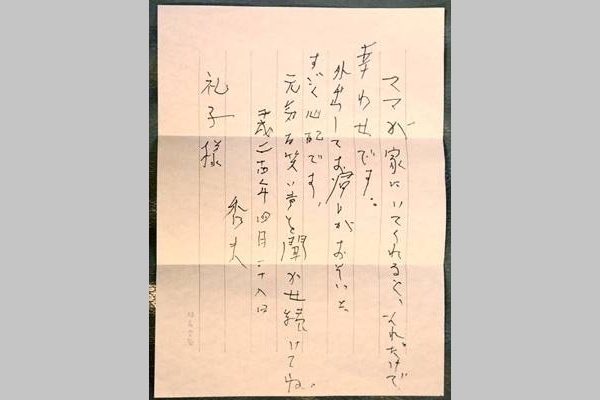 ママが家にいてくれると、それだけで
幸わせです。
外出してお帰りがおそいと、
すごく心配です、
元気な笑い声を聞かせ続けてね。
平成二十四年四月二十八日
秀夫
礼子様